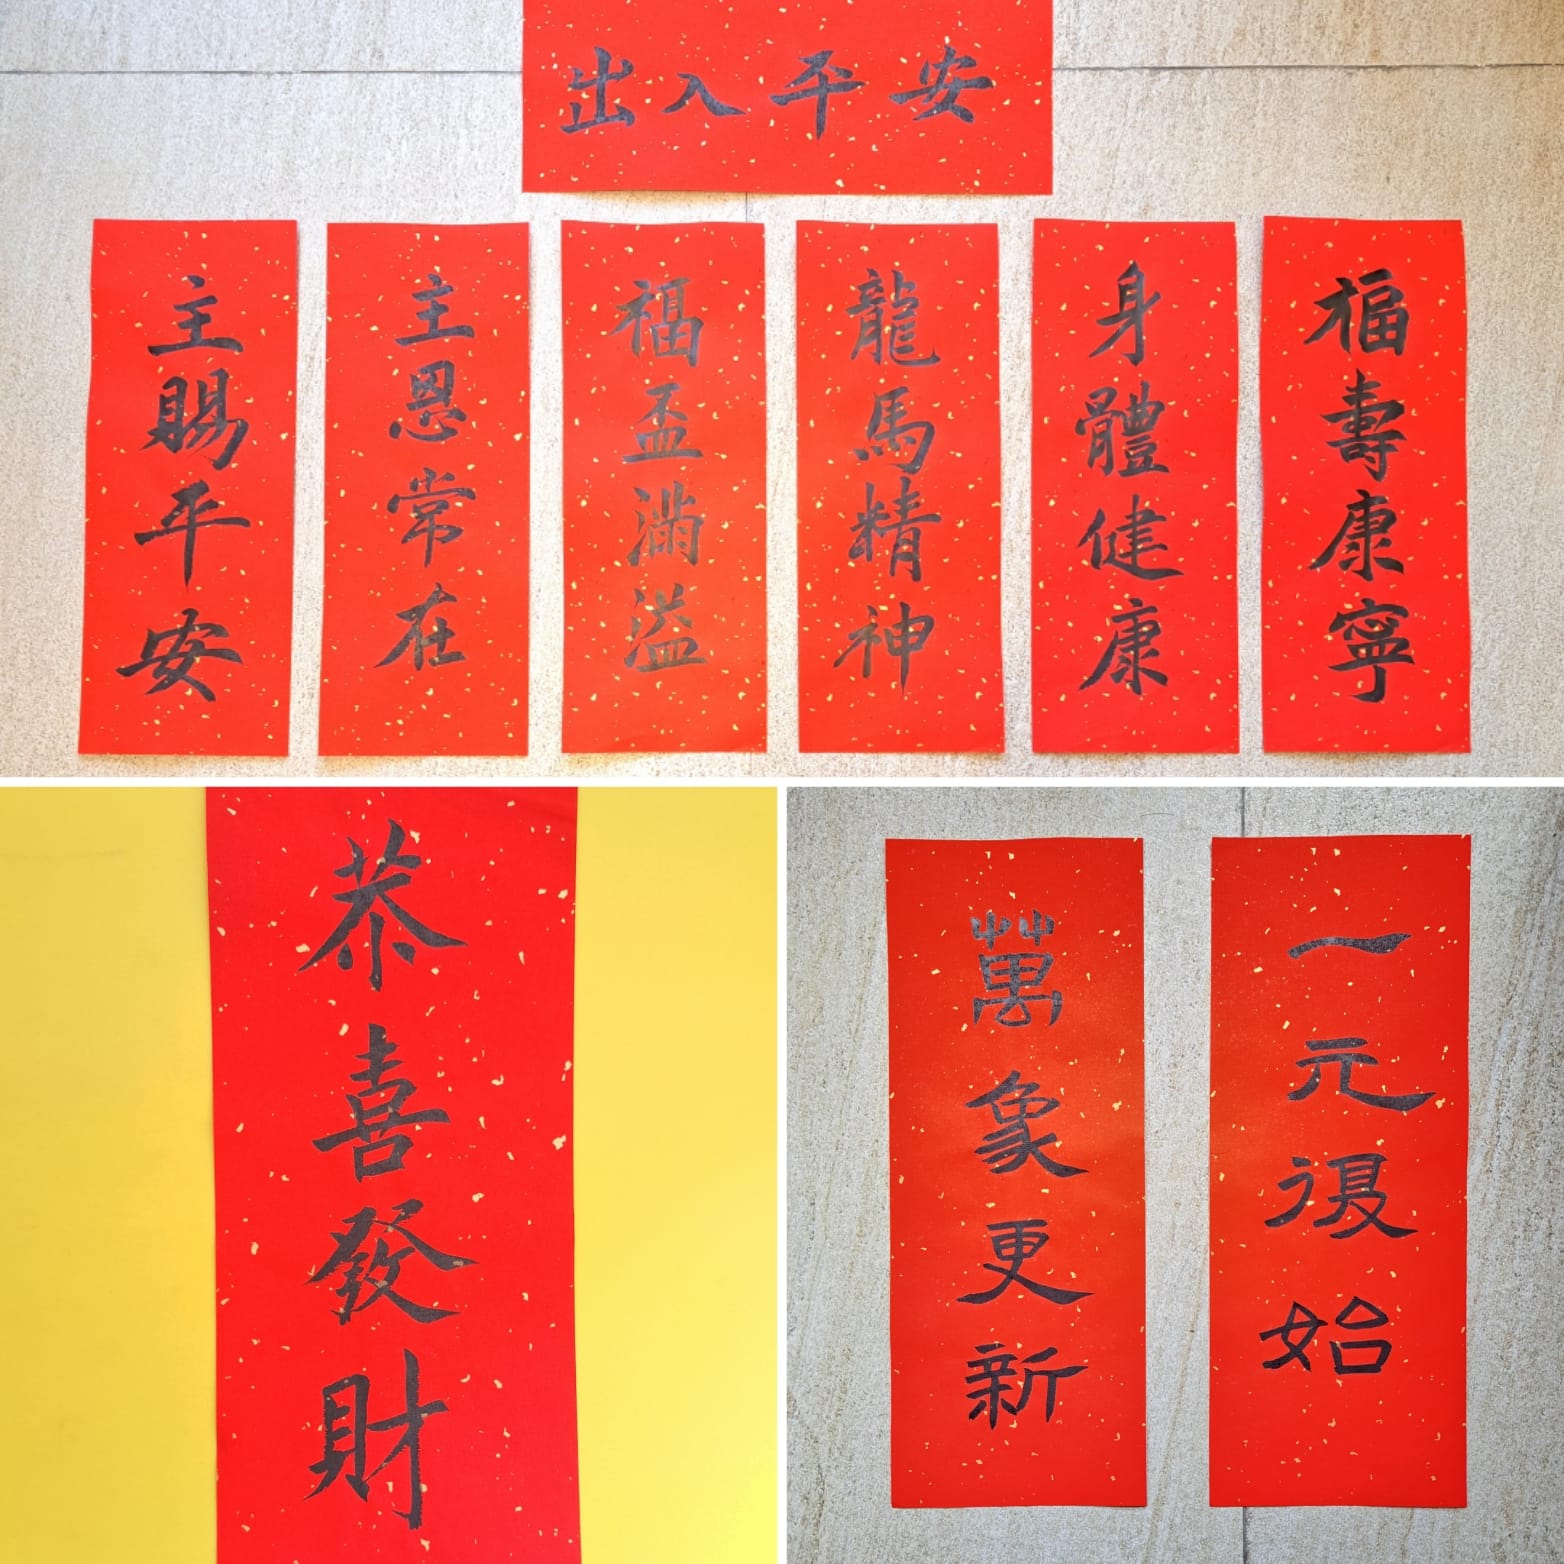 出入平安
福壽康寧
身體健康
龍馬精神
福盃滿溢
主恩常在
主賜平安
恭喜發財
一元復始
萬象更新